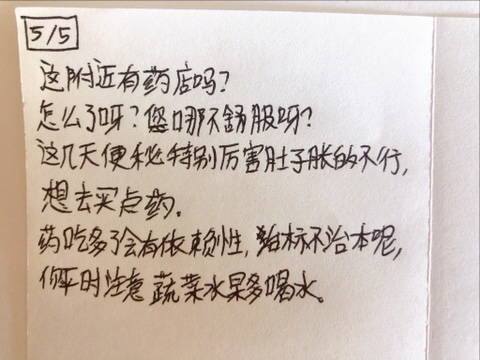 5/5
这附近有药店吗？
怎么了呀？您哪不舒服呀？
这几天便秘特别厉害肚子胀的不行，
想去买点药。
药吃多了会有依赖性，治标不治本呢，
你平时注意蔬菜水果多喝水。